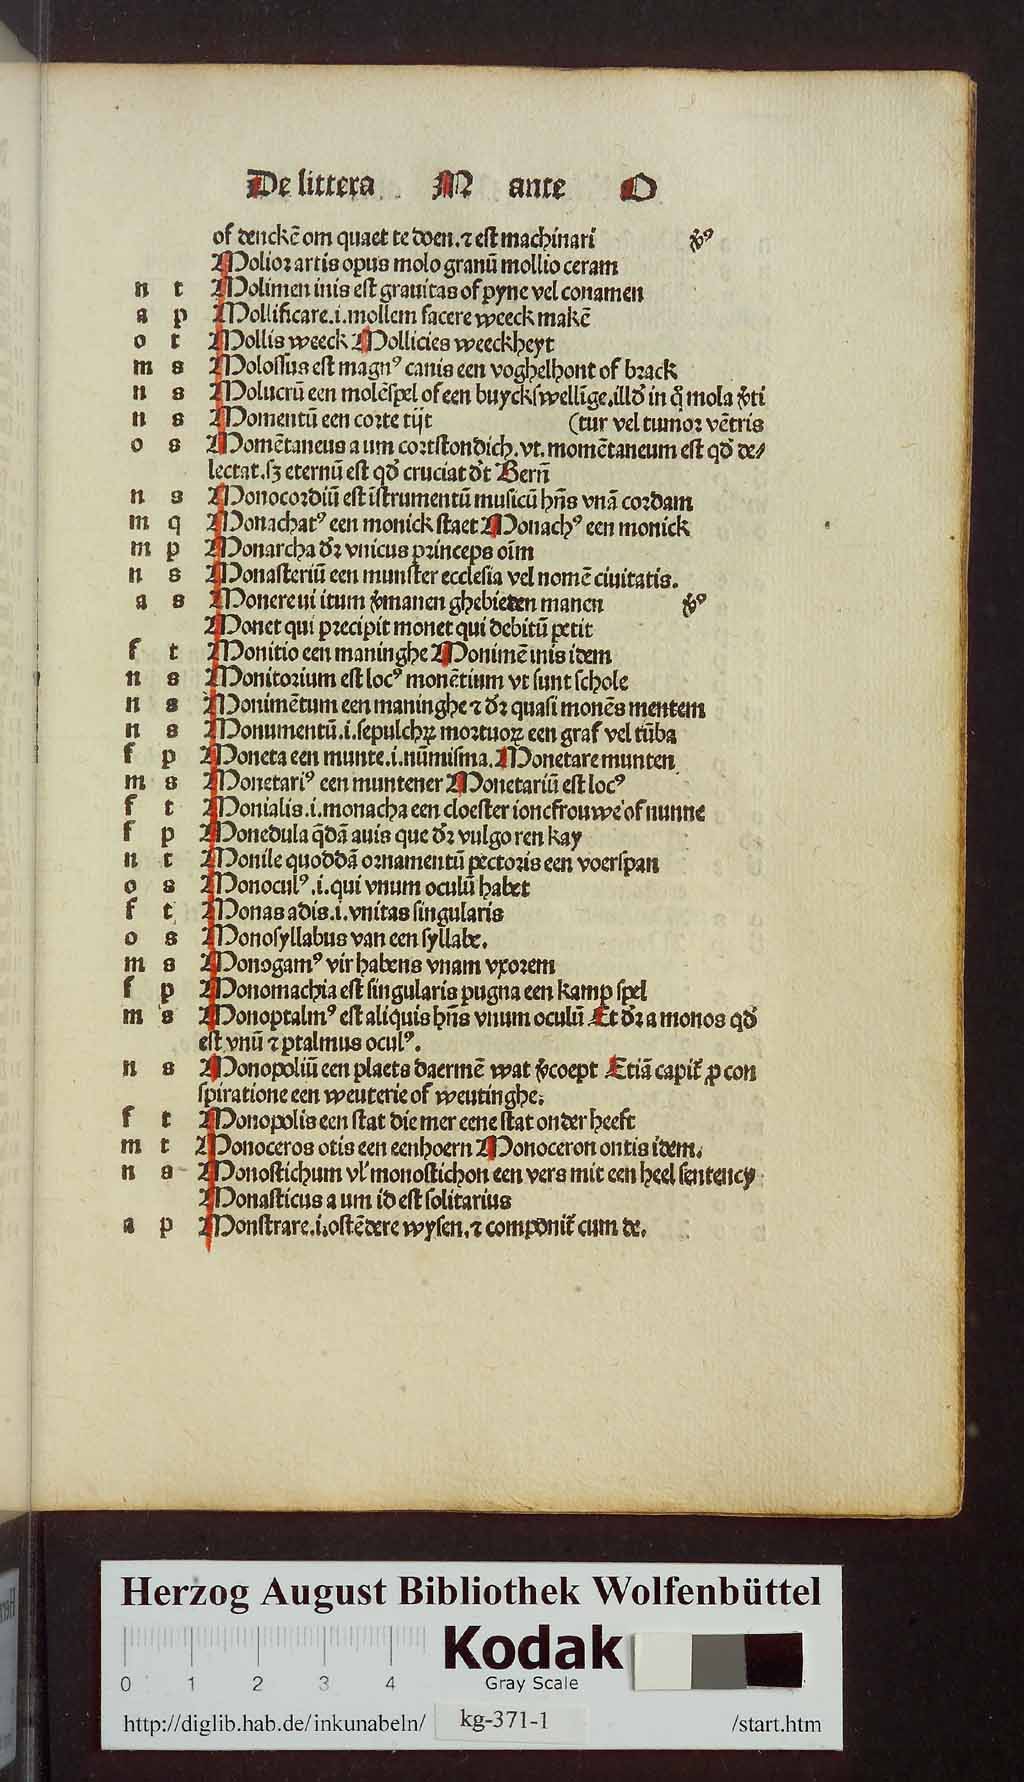 De littera M ante O
of denckē om quaet te doen.⁊ est machinari v̉ꝰ
Molior artis opus molo granū mollio ceram
n t Molimen inis est grauitas of pyne vel conamen
a p Mollificare.i.mollem facere weeck makē
o t Mollis weeck Mollicies weeckheyt
m s Molossus est magnꝰ canis een voghelhont of brack
n s Molucrū een molēspel of een buyckswellīge.illd̓ in q̊ mola v̓ti
n s Momentū een corte tijt (tur vel tumor vētris
o s Momētaneus a um cortstondich.vt.momētaneum est qd̓ de⸗
lectat.sꝫ eternū est qd̓ cruciat d̓t Bern̄
n s Monocordiū est īstrumentū musicū hn̄s vnā cordam
m q Monachatꝰ een monick staet Monachꝰ een monick
m p Monarcha d̓r vnicus princeps oīm
n s Monasteriū een munster ecclesia vel nomē ciuitatis.
a s Monere ui itum v̓manen ghebieten manen v̉ꝰ
Monet qui precipit monet qui debitū petit
f t Monitio een maninghe Monimē inis idem
n s Monitorium est locꝰ monētium vt sunt schole
n s Monimētum een maninghe ⁊ d̓r quasi monēs mentem
n s Monumentū.i.sepulchꝝ mortuoꝝ een graf vel tūba
f p Moneta een munte.i.nūmisma.Monetare munten
m s Monetariꝰ een muntener Monetariū est locꝰ
f t Monialis.i.monacha een cloester ioncfrouwe of nunne
f p Monedula q̄dā auis que d̓r vulgo ren kay
n t Monile quoddā ornamentū pectoris een voerspan
o s Monoculꝰ.i.qui vnum oculū habet
f t Monas adis.i.vnitas singularis
o s Monosyllabus van een syllabe.
m s Monogamꝰ vir habens vnam vxorem
f p Monomachia est singularis pugna een kamp spel
m s Monoptalmꝰ est aliquis hn̄s vnum oculū Et d̓r a monos qd̓
est vnū ⁊ ptalmus oculꝰ.
n s Monopoliū een plaets daermē wat v̓coept Etiā capit̉ ꝓ con
spiratione een weuterie of weutinghe.
f t Monopolis een stat die mer eene stat onder heeft
m t Monoceros otis een eenhoern Monoceron ontis idem.
n s Monostichum vl̓ monostichon een vers mit een heel sentency
Monasticus a um id est solitarius
a p Monstrare.i.ostēdere wysen.⁊ componit̉ cum de.
Herzog August Bibliothek Wolfenbüttel
Kodak
Gray Scale
0 1 2 3 4
http://diglib.hab.de/inkunabeln/ kg-371-1 /start.htm